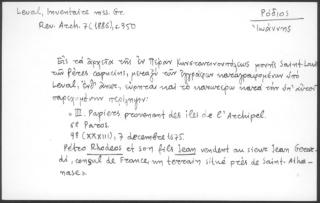 Leval, Inventaire mss. Gr.
Rev. Arch. 7 (1886), σ. 350
Ρόδιος
Ἰωάννης
Εἰς τὰ ἀρχεῖα τῆς ἐν Πέραν Κωνσταντινουπόλεως μονῆς Saint-Louis
τῶν Pères capucins, μεταξὺ τῶν ἐγγράφων καταγραφομένων ὑπὸ
Leval, ἐνθ' ἀνωτ. εὕρηται καὶ τὸ κατωτέρω κατὰ τὴν ὑπ' αὐτοῦ
παρεχομένην περίληψιν:
« III. Papiers provenant des îles de l'Archipel.
6º Paros.
9º (XXXIII), 7 décembre 1675.
Pétro Rhodeos et son fils Jean vendent au sieur Jean
di, consul de France, un terrain situé près de Saint-Atha-
nase ».